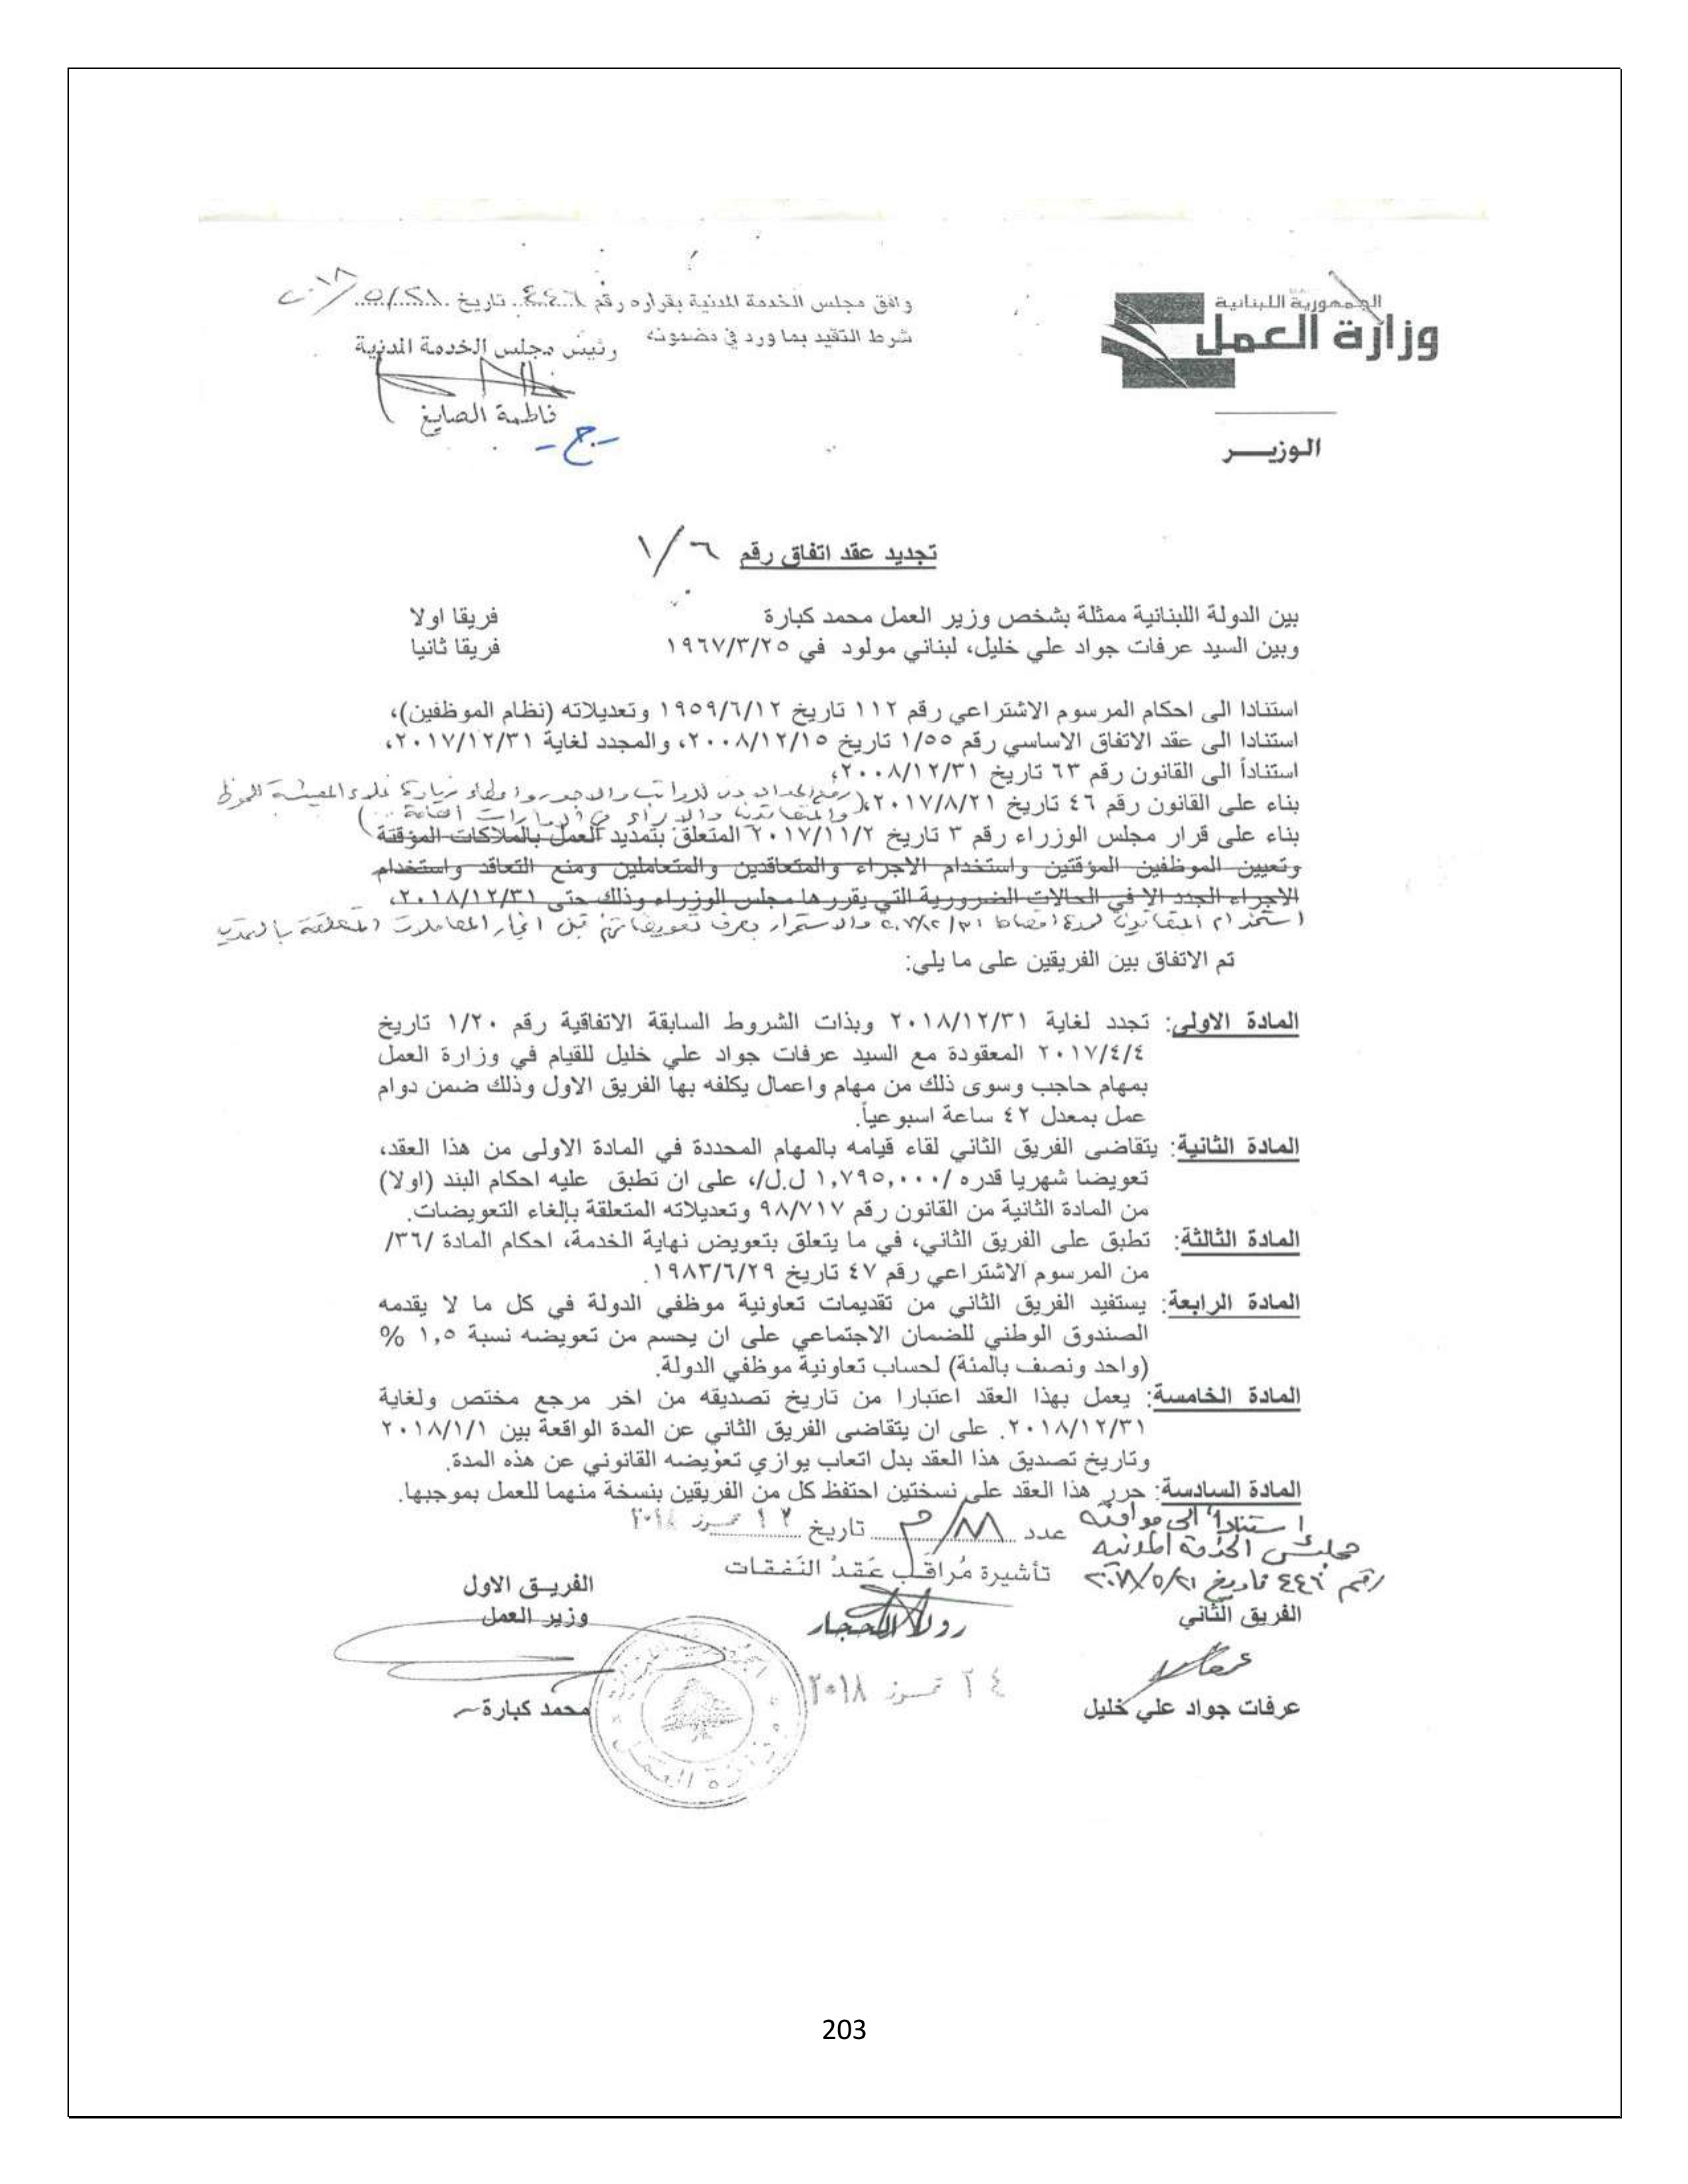 الجمهورية اللبنانية
وزارة العمل
الوزيـــر
وافق مجلس الخدمة المدنية بقراره رقم ٤٤٦ تاريخ ٢٠١٨/٥/٢١
شرط التقيد بما ورد في مضمونه
رئيس مجلس الخدمة المدنية
فاطمة الصايغ
-ج-
تجديد عقد اتفاق رقم ١/٦
بين الدولة اللبنانية ممثلة بشخص وزير العمل محمد كبارة فريقا اولا
وبين السيد عرفات جواد علي خليل، لبناني مولود في ١٩٦٧/٣/٢٥ فريقا ثانيا
استنادا الى احكام المرسوم الاشتراعي رقم ١١٢ تاريخ ١٩٥٩/٦/١٢ وتعديلاته (نظام الموظفين)،
استنادا الى عقد الاتفاق الاساسي رقم ١/٥٥ تاريخ ٢٠٠٨/١٢/١٥، والمجدد لغاية ٢٠١٧/١٢/٣١،
استناداً الى القانون رقم ٦٣ تاريخ ٢٠٠٨/١٢/٣١،
بناء على القانون رقم ٤٦ تاريخ ٢٠١٧/٨/٢١، (رفع الحد الادنى للرواتب والاجور واعطاء زيادة غلاء المعيشة للموظفين
والمتعاقدين والاجراء في الادارات العامة ...)
بناء على قرار مجلس الوزراء رقم ٣ تاريخ ٢٠١٧/١١/٢ المتعلق بتمديد العمل بالملاكات المؤقتة
وتعيين الموظفين المؤقتين واستخدام الاجراء والمتعاقدين والمتعاملين ومنع التعاقد واستخدام
الاجراء الجدد الا في الحالات الضرورية التي يقررها مجلس الوزراء وذلك حتى ٢٠١٨/١٢/٣١،
استخدام المتعاقدين لمدة اقصاها ٢٠١٨/١٢/٣١ والاستمرار بصرف تعويضاتهم قبل انجاز المعاملات المتعلقة بالتمديد
تم الاتفاق بين الفريقين على ما يلي:
المادة الاولى: تجدد لغاية ٢٠١٨/١٢/٣١ وبذات الشروط السابقة الاتفاقية رقم ١/٢٠ تاريخ
٢٠١٧/٤/٤ المعقودة مع السيد عرفات جواد علي خليل للقيام في وزارة العمل
بمهام حاجب وسوى ذلك من مهام واعمال يكلفه بها الفريق الاول وذلك ضمن دوام
عمل بمعدل ٤٢ ساعة اسبوعياً.
المادة الثانية: يتقاضى الفريق الثاني لقاء قيامه بالمهام المحددة في المادة الاولى من هذا العقد،
تعويضا شهريا قدره /١,٧٩٥,٠٠٠ ل.ل/، على ان تطبق عليه احكام البند (اولا)
من المادة الثانية من القانون رقم ٩٨/٧١٧ وتعديلاته المتعلقة بإلغاء التعويضات.
المادة الثالثة: تطبق على الفريق الثاني، في ما يتعلق بتعويض نهاية الخدمة، احكام المادة /٣٦/
من المرسوم الاشتراعي رقم ٤٧ تاريخ ١٩٨٣/٦/٢٩.
المادة الرابعة: يستفيد الفريق الثاني من تقديمات تعاونية موظفي الدولة في كل ما لا يقدمه
الصندوق الوطني للضمان الاجتماعي على ان يحسم من تعويضه نسبة ١,٥ %
(واحد ونصف بالمئة) لحساب تعاونية موظفي الدولة.
المادة الخامسة: يعمل بهذا العقد اعتبارا من تاريخ تصديقه من اخر مرجع مختص ولغاية
٢٠١٨/١٢/٣١. على ان يتقاضى الفريق الثاني عن المدة الواقعة بين ٢٠١٨/١/١
وتاريخ تصديق هذا العقد بدل اتعاب يوازي تعويضه القانوني عن هذه المدة.
المادة السادسة: حرر هذا العقد على نسختين احتفظ كل من الفريقين بنسخة منهما للعمل بموجبها.
استناداً الى موافقة
مجلس الخدمة المدنية
رقم ٤٤٦ تاريخ ٢٠١٨/٥/٢١
عدد ٨٨/م تاريخ ١٢ تموز ٢٠١٨
تأشيرة مُراقب عَقدُ النَفقات
رولا الحجار
٢٤ تموز ٢٠١٨
الفريق الثاني
عرفات جواد علي خليل
الفريـق الاول
وزير العمل
محمد كبارة
203